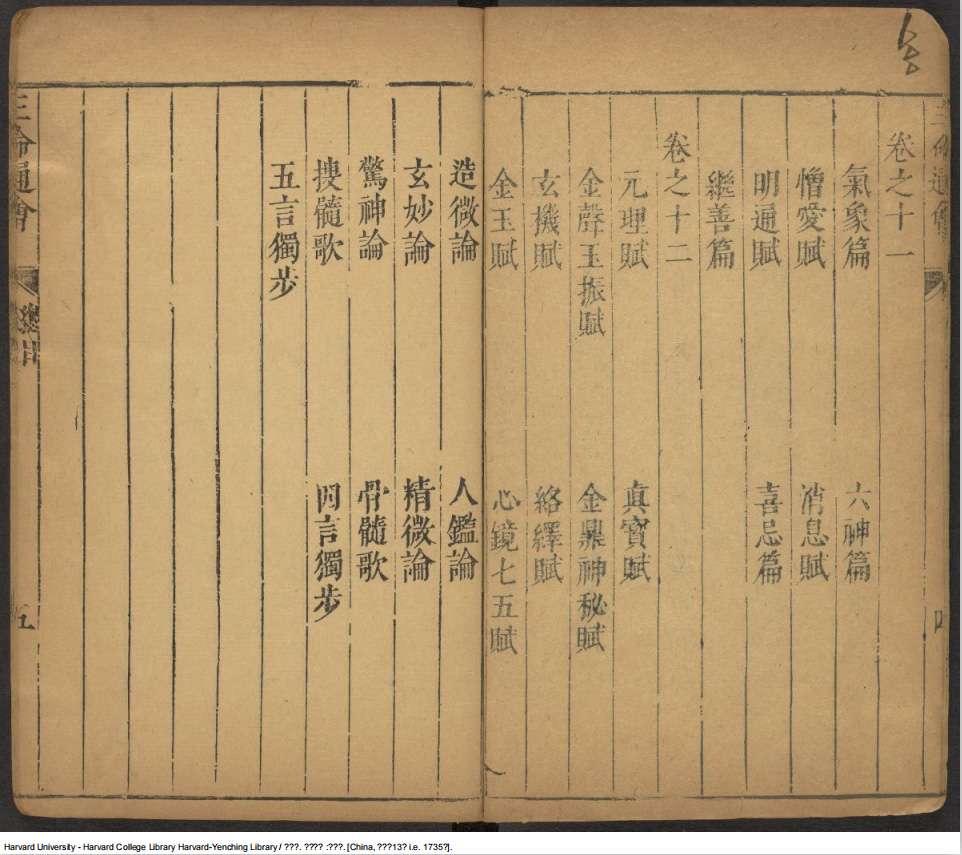 卷之十一
氣象篇 六神篇
憎愛賦 消息賦
明通賦 喜忌篇
繼善篇
卷之十二
元理賦 真寶賦
金聲玉振賦 金鼎神秘賦
玄機賦 絡繹賦
金玉賦 心鏡七五賦
造微論 人鑑論
玄妙論 精微論
驚神論 骨髓歌
搜髓歌 四言獨步
五言獨步
三命通會 總目 五
Harvard University - Harvard College Library Harvard-Yenching Library / ???. ???? :???. [China, ???13? i.e. 1735?].